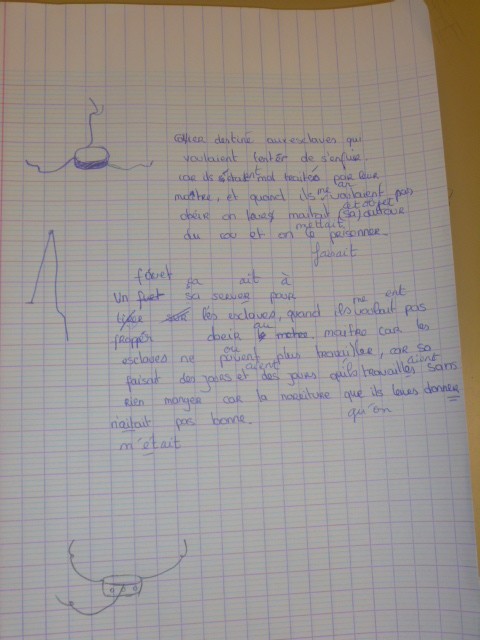 collier destiné aux esclaves qui
voulaient tenter de s'enfuire
car ils étaient mal traités par leur
maître, et quand ils ne voulaient pas
obéire on leurs mettait sa autour
du cou et on le prisonner.
faisait
fouet sa ait à
Un fuet sa server pour
les esclaves, quand ils ne voulait pas
ent
frapper obeir au maitre car les
esclaves ne pouvaient plus travailler, car sa
faisait des jours et des jours qu'ils travailles aient sans
rien manger car la nourriture que ils leurs donner
qu'on
n'aitait pas bonne.
n'était